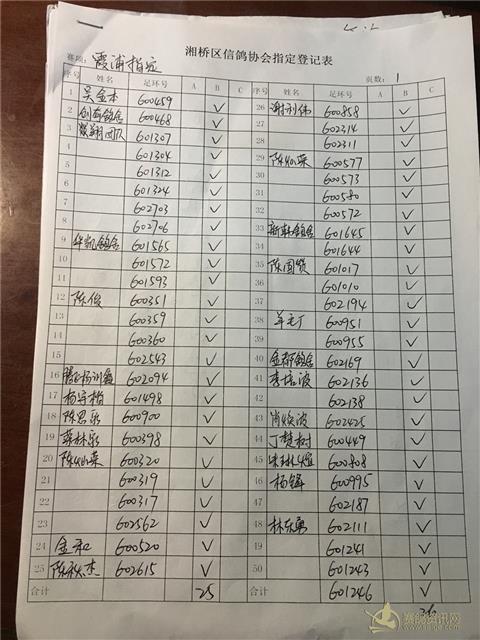 湘桥区信鸽协会指定登记表
赛项: 霞浦指定 页数: 1
序号 姓名 足环号 A B C 序号 姓名 足环号 A B C
1 吴金本 600459 ✓ 26 600858 ✓
2 创奇鸽舍 600468 ✓ 27 602314 ✓
3 翔团队 601307 ✓ 28 602311 ✓
4 601304 ✓ 29 陈灿荣 600577 ✓
5 601312 ✓ 30 600573 ✓
6 601324 ✓ 31 600580 ✓
7 602703 ✓ 32 600572 ✓
8 602706 ✓ 33 新联鸽舍 601645 ✓
9 华凯鸽舍 601565 ✓ 34 601644 ✓
10 601572 ✓ 35 陈国 601017 ✓
11 601593 ✓ 36 601010 ✓
12 陈俊 600351 ✓ 37 602194 ✓
13 600359 ✓ 38 600951 ✓
14 600360 ✓ 39 600955 ✓
15 602543 ✓ 40 金都鸽舍 602169 ✓
16 602094 ✓ 41 李培波 602136 ✓
17 杨宇楷 601498 ✓ 42 602138 ✓
18 陈思永 600900 ✓ 43 肖焕波 602425 ✓
19 蔡林彬 600398 ✓ 44 丁楚树 600449 ✓
20 陈灿荣 600320 ✓ 45 600808 ✓
21 600319 ✓ 46 杨锋 600995 ✓
22 600317 ✓ 47 602187 ✓
23 602562 ✓ 48 林东勇 602111 ✓
24 金和 600520 ✓ 49 601241 ✓
25 陈秋杰 602615 ✓ 50 601243 ✓
合计 25 合计 601246 ✓
26
赛鸽资讯网